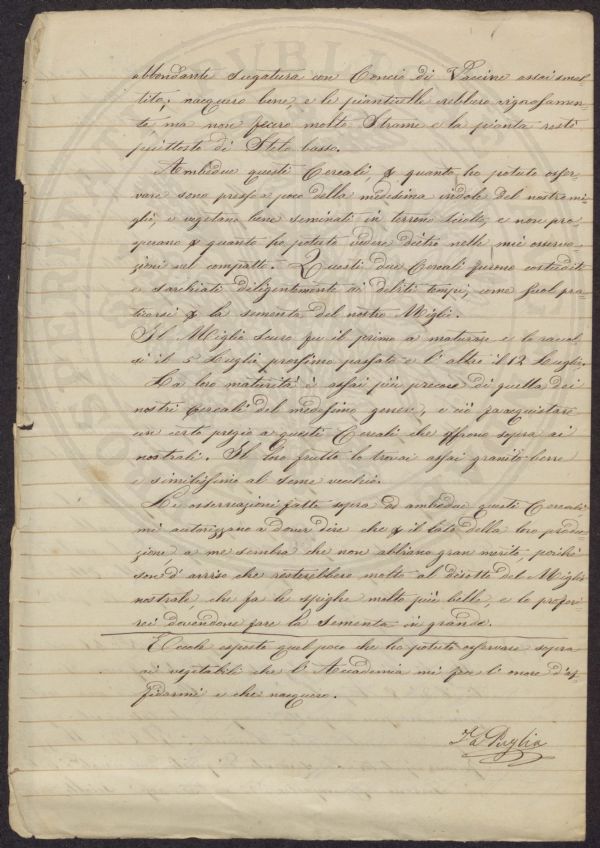 abbondante sugatura con Concio di Vaccine assai smal-
tito; nacquero bene, e le pianticelle crebbero vigorosamen-
te, ma non fecero molto Strame e la pianta restò
piuttosto di Stelo basso.
Ambedue questi Cereali, p quanto ho potuto osser-
vare sono presso a poco della medesima indole del nostro mi-
glio, e vegetano bene seminati in terreno sciolto, e non pro-
sperano p quanto ho potuto vedere dietro nelle mie osserva-
zioni nel compatto. Questi due Cereali furono custoditi
e sarchiati diligentemente ai debiti tempi, come suol pra-
ticarsi p la sementa del nostro Miglio.
Il Miglio scuro fu il primo a maturare e lo racol-
si il 5 Luglio prossimo passato e l'altro il 12 Luglio.
La loro maturità è assai più precoce di quella dei
nostri Cereali del medesimo genere, e ciò fa acquistare
un certo pregio a questi Cereali che offrono sopra ai
nostrali. Il loro frutto lo trovai assai granito bene
e similissimo al seme vecchio.
Le osservazioni fatte sopra ad ambedue questi Cereali
mi autorizzano a dover dire che p il lato della loro produ-
zione, a me sembra che non abbiano gran merito, poiché
son d'avviso che resterebbero molto al disotto del Miglio
nostrale, che fa le spighe molto più belle, e lo preferi-
rei dovendone fare la Sementa in grande.
Eccole esposto quel poco che ho potuto osservare sopra
ai vegetabili che l'Accademia mi fece l'onore d'af-
fidarmi e che nacquero.
Puglia